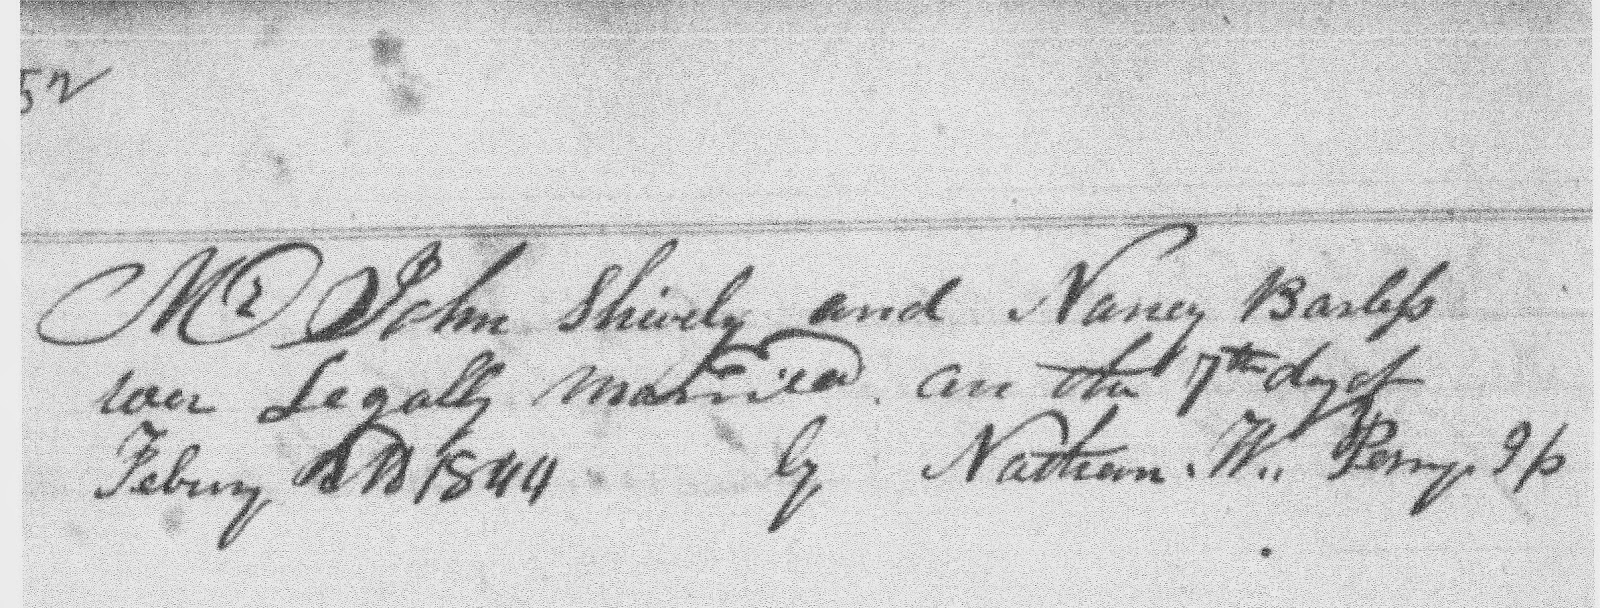 52
Mr John Shively and Nancy Barless
wer Legally married on the 7th day of
Febury AD 1844 by Nathan. W. Perry Jp